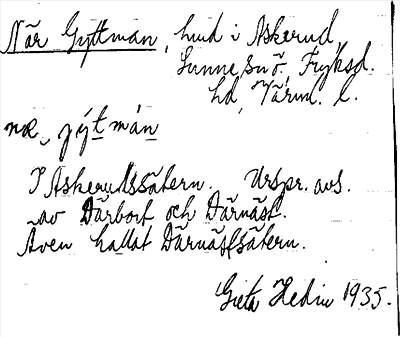 När Gyttman, hud i Askerud,
Sunne sn ö., Fryksd.
hd, Värm. l.
I Askerudssätern. Urspr. avs.
av Därbort och Därnäst.
Även kallat Därnästsätern.
Greta Hedin 1935.